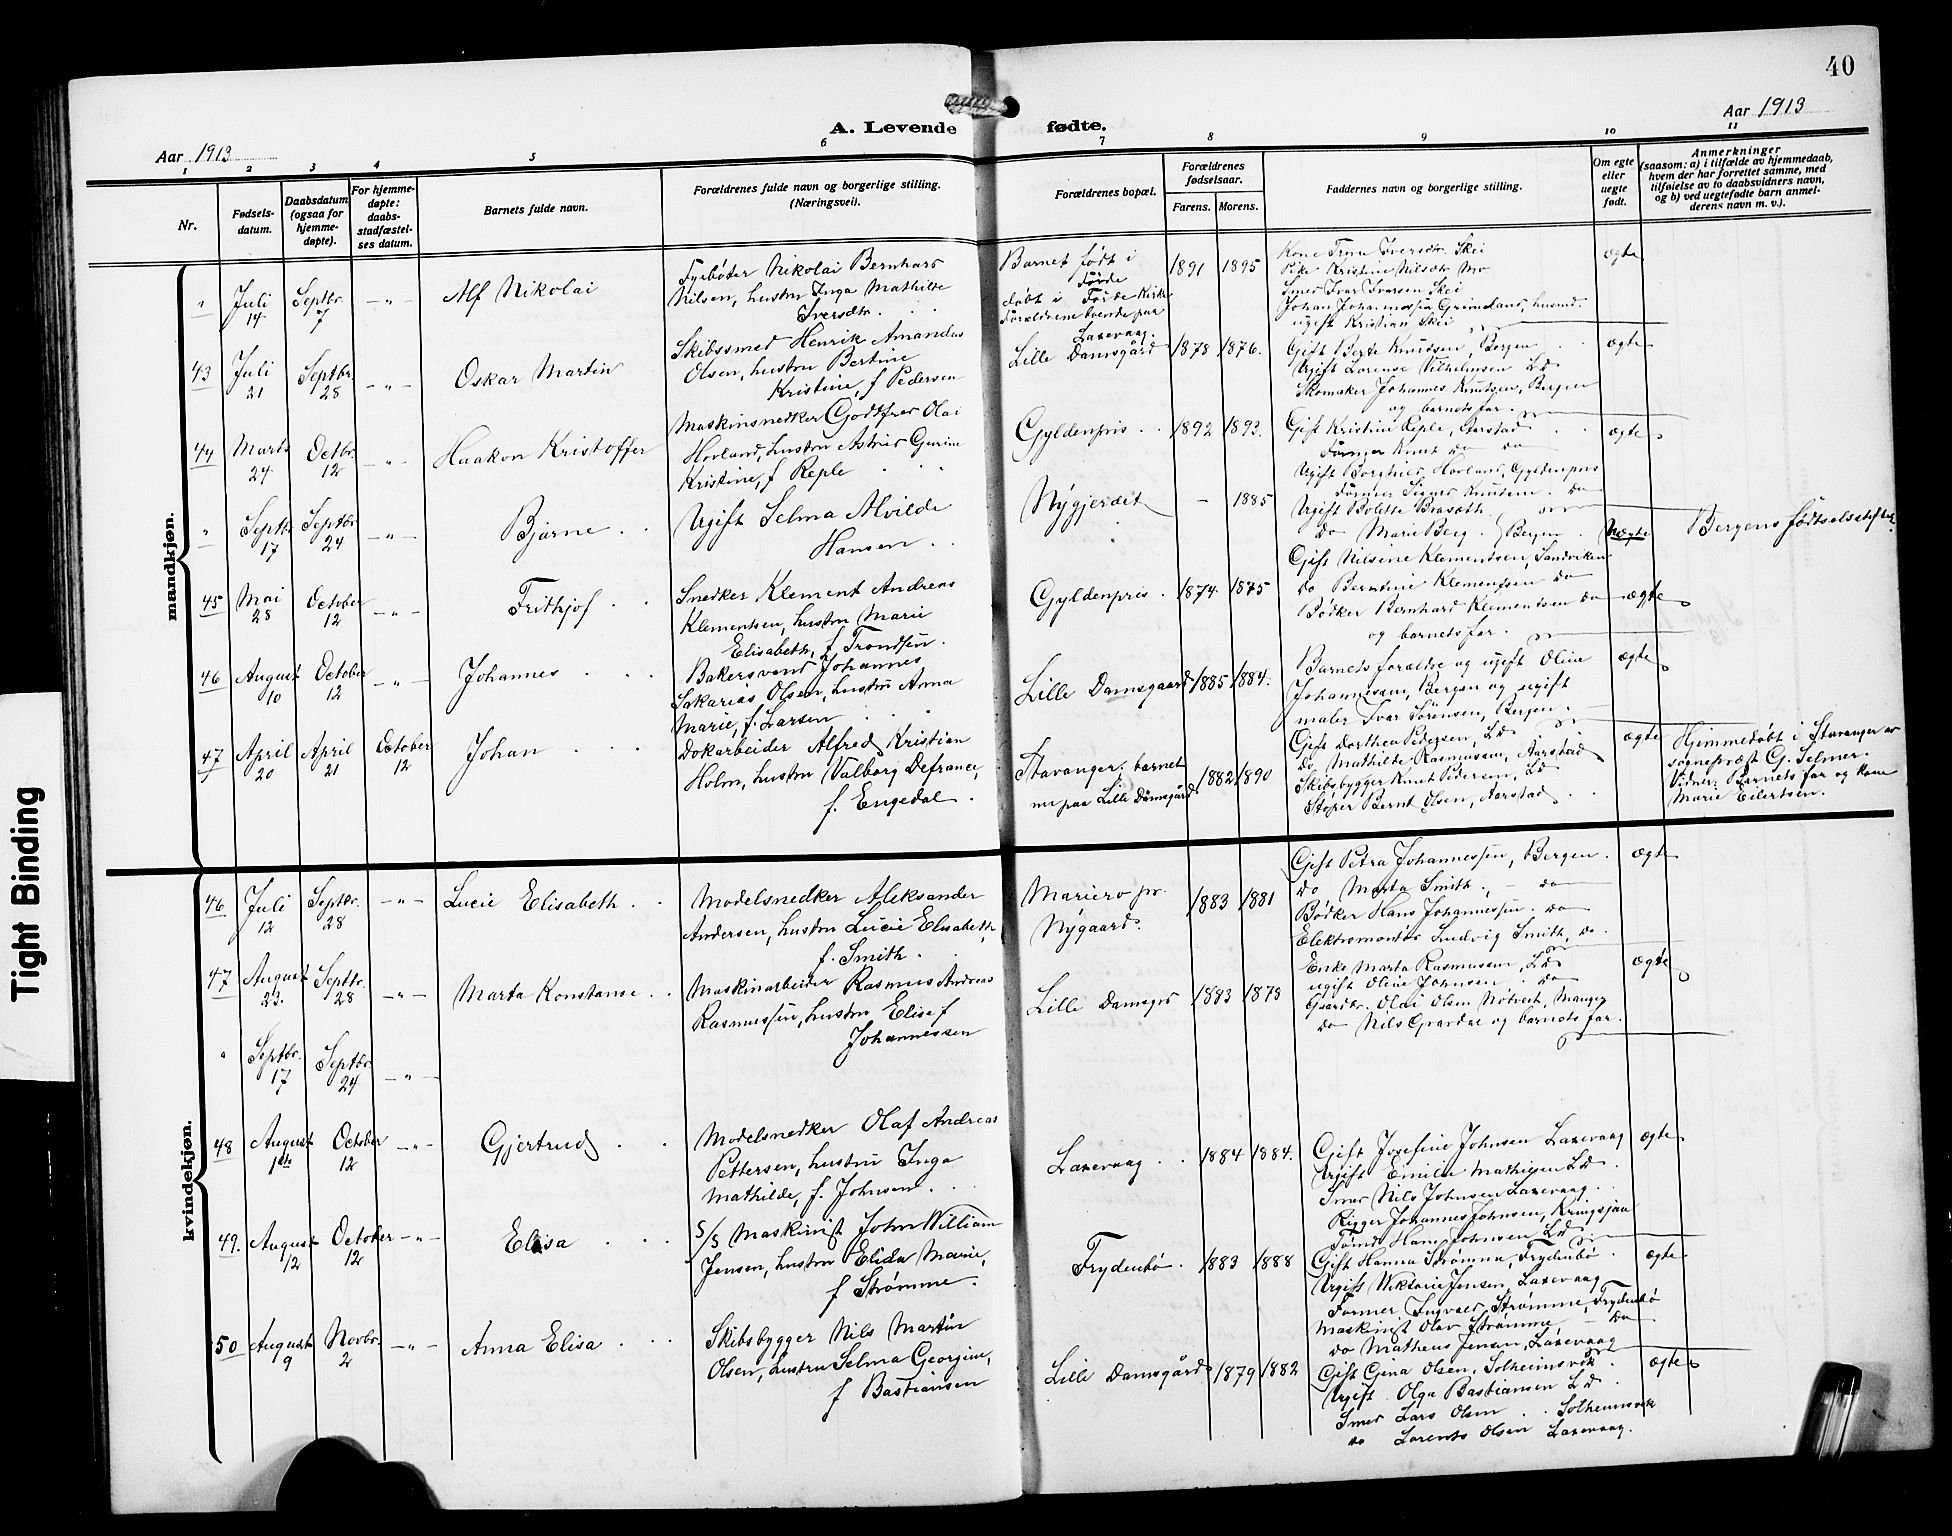 40
Aar 1913
A. Levende fødte.
Aar 1913
1 2 3 4 5 6 7 8 9 10 11
Nr.
Fødsels-
datum.
Daabsdatum
(ogsaa for
hjemme-
døpte).
For hjemme-
døpte:
daabs-
stadfæstel-
ses datum.
Barnets fulde navn.
Forældrenes fulde navn og borgerlige stilling.
(Næringsvei).
Forældrenes bopæl.
Forældrenes
fødselsaar.
Farens. Morens.
Faddernes navn og borgerlige stilling.
Om egte
eller
uegte
født.
Anmerkninger
(saasom: a) i tilfælde av hjemmedaab,
hvem der har forrettet samme, med
tilføielse av to daabsvidners navn,
og b) ved uegtefødte barn anmel-
derens navn m. v.).
mandkjøn.
" Juli 14 Septbr. 7 — " — Alf Nikolai
Fyrbøter Nikolai Bernhard
Nilsen, hustru Inga Mathilde
Iversdtr.
Barnet født i
Førde
døbt i Førde Kirke
Forældrene boende paa
Laxevaag.
1891 1895
Kone Trine Iversdtr. Skei
Pike Kristine Nilsdtr. Mo
Smed Ivar Iversen Skei
Johan Johannessen Grimeland, husmd.
ugift Kristian Skei
ægte
43 Juli 21 Septbr. 28 — " — Oskar Martin
Skibssmed Henrik Amandus
Olsen, hustru Bertine
Kristine, f Pedersen
Lille Damsgård 1878 1876.
Gift Berte Knudsen, Bergen
Ugift Lorense Vilhelmsen Ld
Skomaker Johannes Knutsen, Bergen
og barnets far.
ægte
44 Marts 24 Octbr. 12 — " — Haakon Kristoffer
Maskinsnedker Godtfred Olai
Hovland, hustru Astrid Gurine
Kristine, f Reple
Gyldenpris 1892 1893.
Gift Kristine Reple, Aarstad
Former Knut Do Do
Ugift Borghild Hovland, Gyldenpris
Former Sigurd Knutsen. Do
ægte
" Septbr. 17 Septbr. 24 — " — Bjarne
Ugift Selma Alvilde
Hansen
Nygjerdet — 1885
Ugift Bolette Brasøth
Do Marie Berg. } Bergen
Uægte
Bergens fødselsstiftelse
45 Mai 28 October 12 — " — Frithjof
Snedker Klement Andreas
Klementsen, hustru Marie
Elisabeth, f. Trondsen.
Gyldenpris 1874 1875
Gift Nilsine Klementsen, Sandviken
do Berntine Klementsen Do
Bødker Bernhard Klementsen Do
og barnets far.
ægte
46 August 10 October 12 — " — Johannes
Bakersvend Johannes
Sakarias Olsen, hustru Anna
Marie, f. Larsen
Lille Damsgaard 1885 1884.
Barnets forældre og ugift Oline
Johannesen, Bergen og ugift
maler Ivar Sørensen, Bergen.
ægte
47 April 20 April 21 October 12 Johan
Dokarbeider Alfred Kristian
Holm, hustru Valborg Defrance,
f. Engedal.
Stavanger; barnet
nu paa Lille Damsgård
1882 1890
Gift Dorthea Pedersen, Ld
Do Mathilde Rasmussen, Aarstad
Skibsbygger Knut Pedersen, Ld
Støper Bernt Olsen, Aarstad
ægte
Hjemmedøbt i Stavanger av
sogneprest G. Selmer.
Vidner: Barnets far og kone
Marie Eilertsen.
kvindekjøn.
46 Juli 12 Septbr. 28 — " — Lucie Elisabeth
Modelsnedker Aleksander
Andersen, hustru Lucie Elisabeth,
f. Smith.
Mariero pr.
Nygaard.
1883 1881
Gift Petra Johannessen, Bergen.
Do Marta Smith, — do
Bødker Hans Johannessen. Do
Elektromontør Ludvig Smith, do.
ægte
47 August 23. Septbr. 28 — " — Marta Konstanse
Maskinarbeider Rasmus Andreas
Rasmussen, hustru Elise f
Johannessen
Lille Damsgrd 1883 1878
Enke Marta Rasmussen, Ld
ugift Oline Johnsen do
Gaardbr. Olai Olsen Nøtvedt, Manger
Do Nils Grardae og barnets far.
ægte
" Septbr. 17 Septbr. 24 — " —
48 August 1ste October 12 — " — Gjertrud
Modelsnedker Olaf Andreas
Pettersen, hustru Inga
Mathilde, f. Johnsen.
Laxevaag 1884 1884.
Gift Josefine Johnsen Laxevaag
Ugift Emilie Mathiesen Ld
Smed Nils Johnsen Laxevaag
Rigger Johannes Johnsen, Kringsjaa
Tømd. Hans Johnsen Ld
ægte
49. August 12 October 12 — " — Elisa
S/S Maskinist John William
Jensen, hustru Elida Marie,
f Strømme.
Frydenbø. 1883 1888
Gift Hanna Strømme, Frydenbø
Ugift Viktorie Jensen, Laxevaag
Former Ingvald Strømme, Frydenbø
Maskinist Olav Strømme — Do
Do Matheus Jensen, Laxevaag
ægte
50 August 9 Novbr. 2 — " — Anna Elisa
Skibsbygger Nils Martin
Olsen, hustru Selma Georgine,
f Bastiansen
Lille Damsgård 1879 1882
Gift Gina Olsen, Solheimsvik
Ugift Olga Bastiansen Ld
Smed Lars Olsen Solheimsvik
Do Lorents Olsen Laxevaag.
ægte
Tight Binding